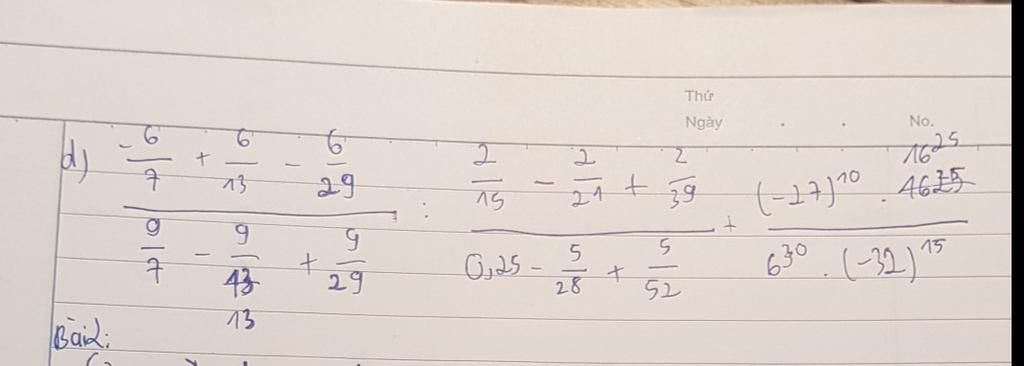 Thứ
Ngày . . No.
d) (-6/7 + 6/13 - 6/29)/(9/7 - 9/13 + 9/29) : (2/15 - 2/21 + 2/39)/(0,25 - 5/28 + 5/52) + ((-27)^10 . 16^25)/(6^30 . (-32)^15)
Bài2: